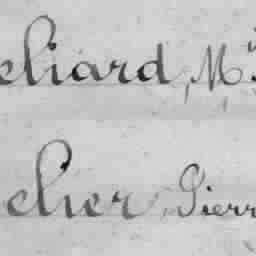 eliard, M
cher, Pierr